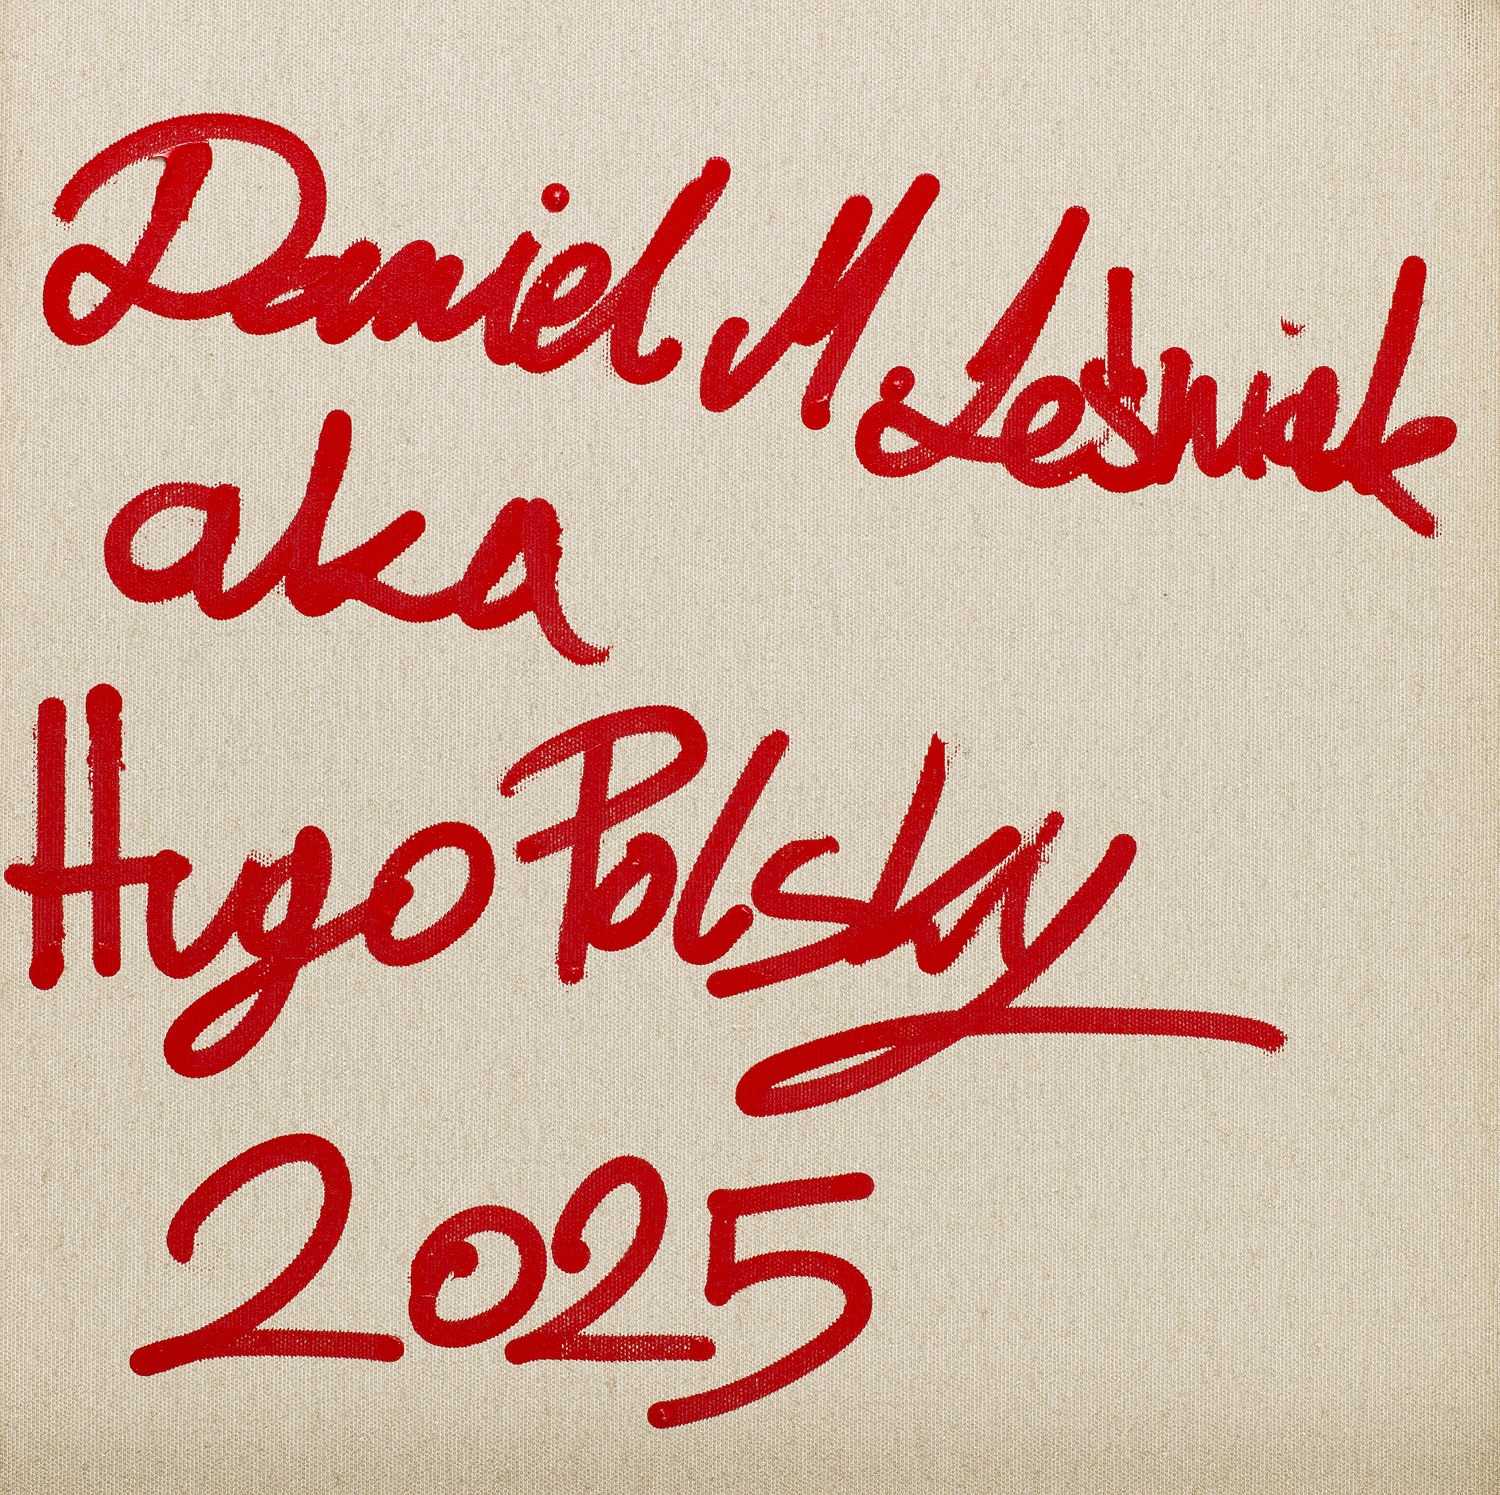 Daniel M. Leśniak
aka
Hugo Polsky
2025